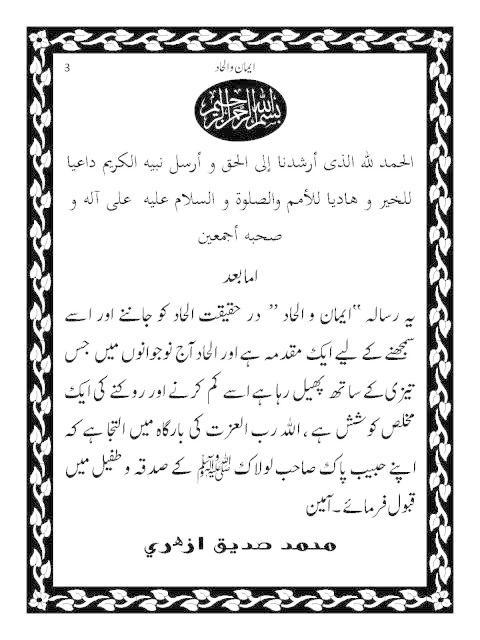 3
ایمان و الحاد
بسم الله الرحمن الرحيم
الحمد لله الذى أرشدنا إلى الحق و أرسل نبيه الكريم داعيا
للخير و هاديا للأمم والصلوة و السلام عليه على آله و
صحبه أجمعين
اما بعد
یہ رسالہ "ایمان و الحاد" در حقیقت الحاد کو جاننے اور اسے
سمجھنے کے لیے ایک مقدمہ ہے اور الحاد آج نوجوانوں میں جس
تیزی کے ساتھ پھیل رہا ہے اسے کم کرنے اور روکنے کی ایک
مخلص کوشش ہے ، اللہ رب العزت کی بارگاہ میں التجا ہے کہ
اپنے حبیب پاک صاحب لولاک ﷺ کے صدقہ و طفیل میں
قبول فرمائے۔ آمین
محمد صدیق ازهري